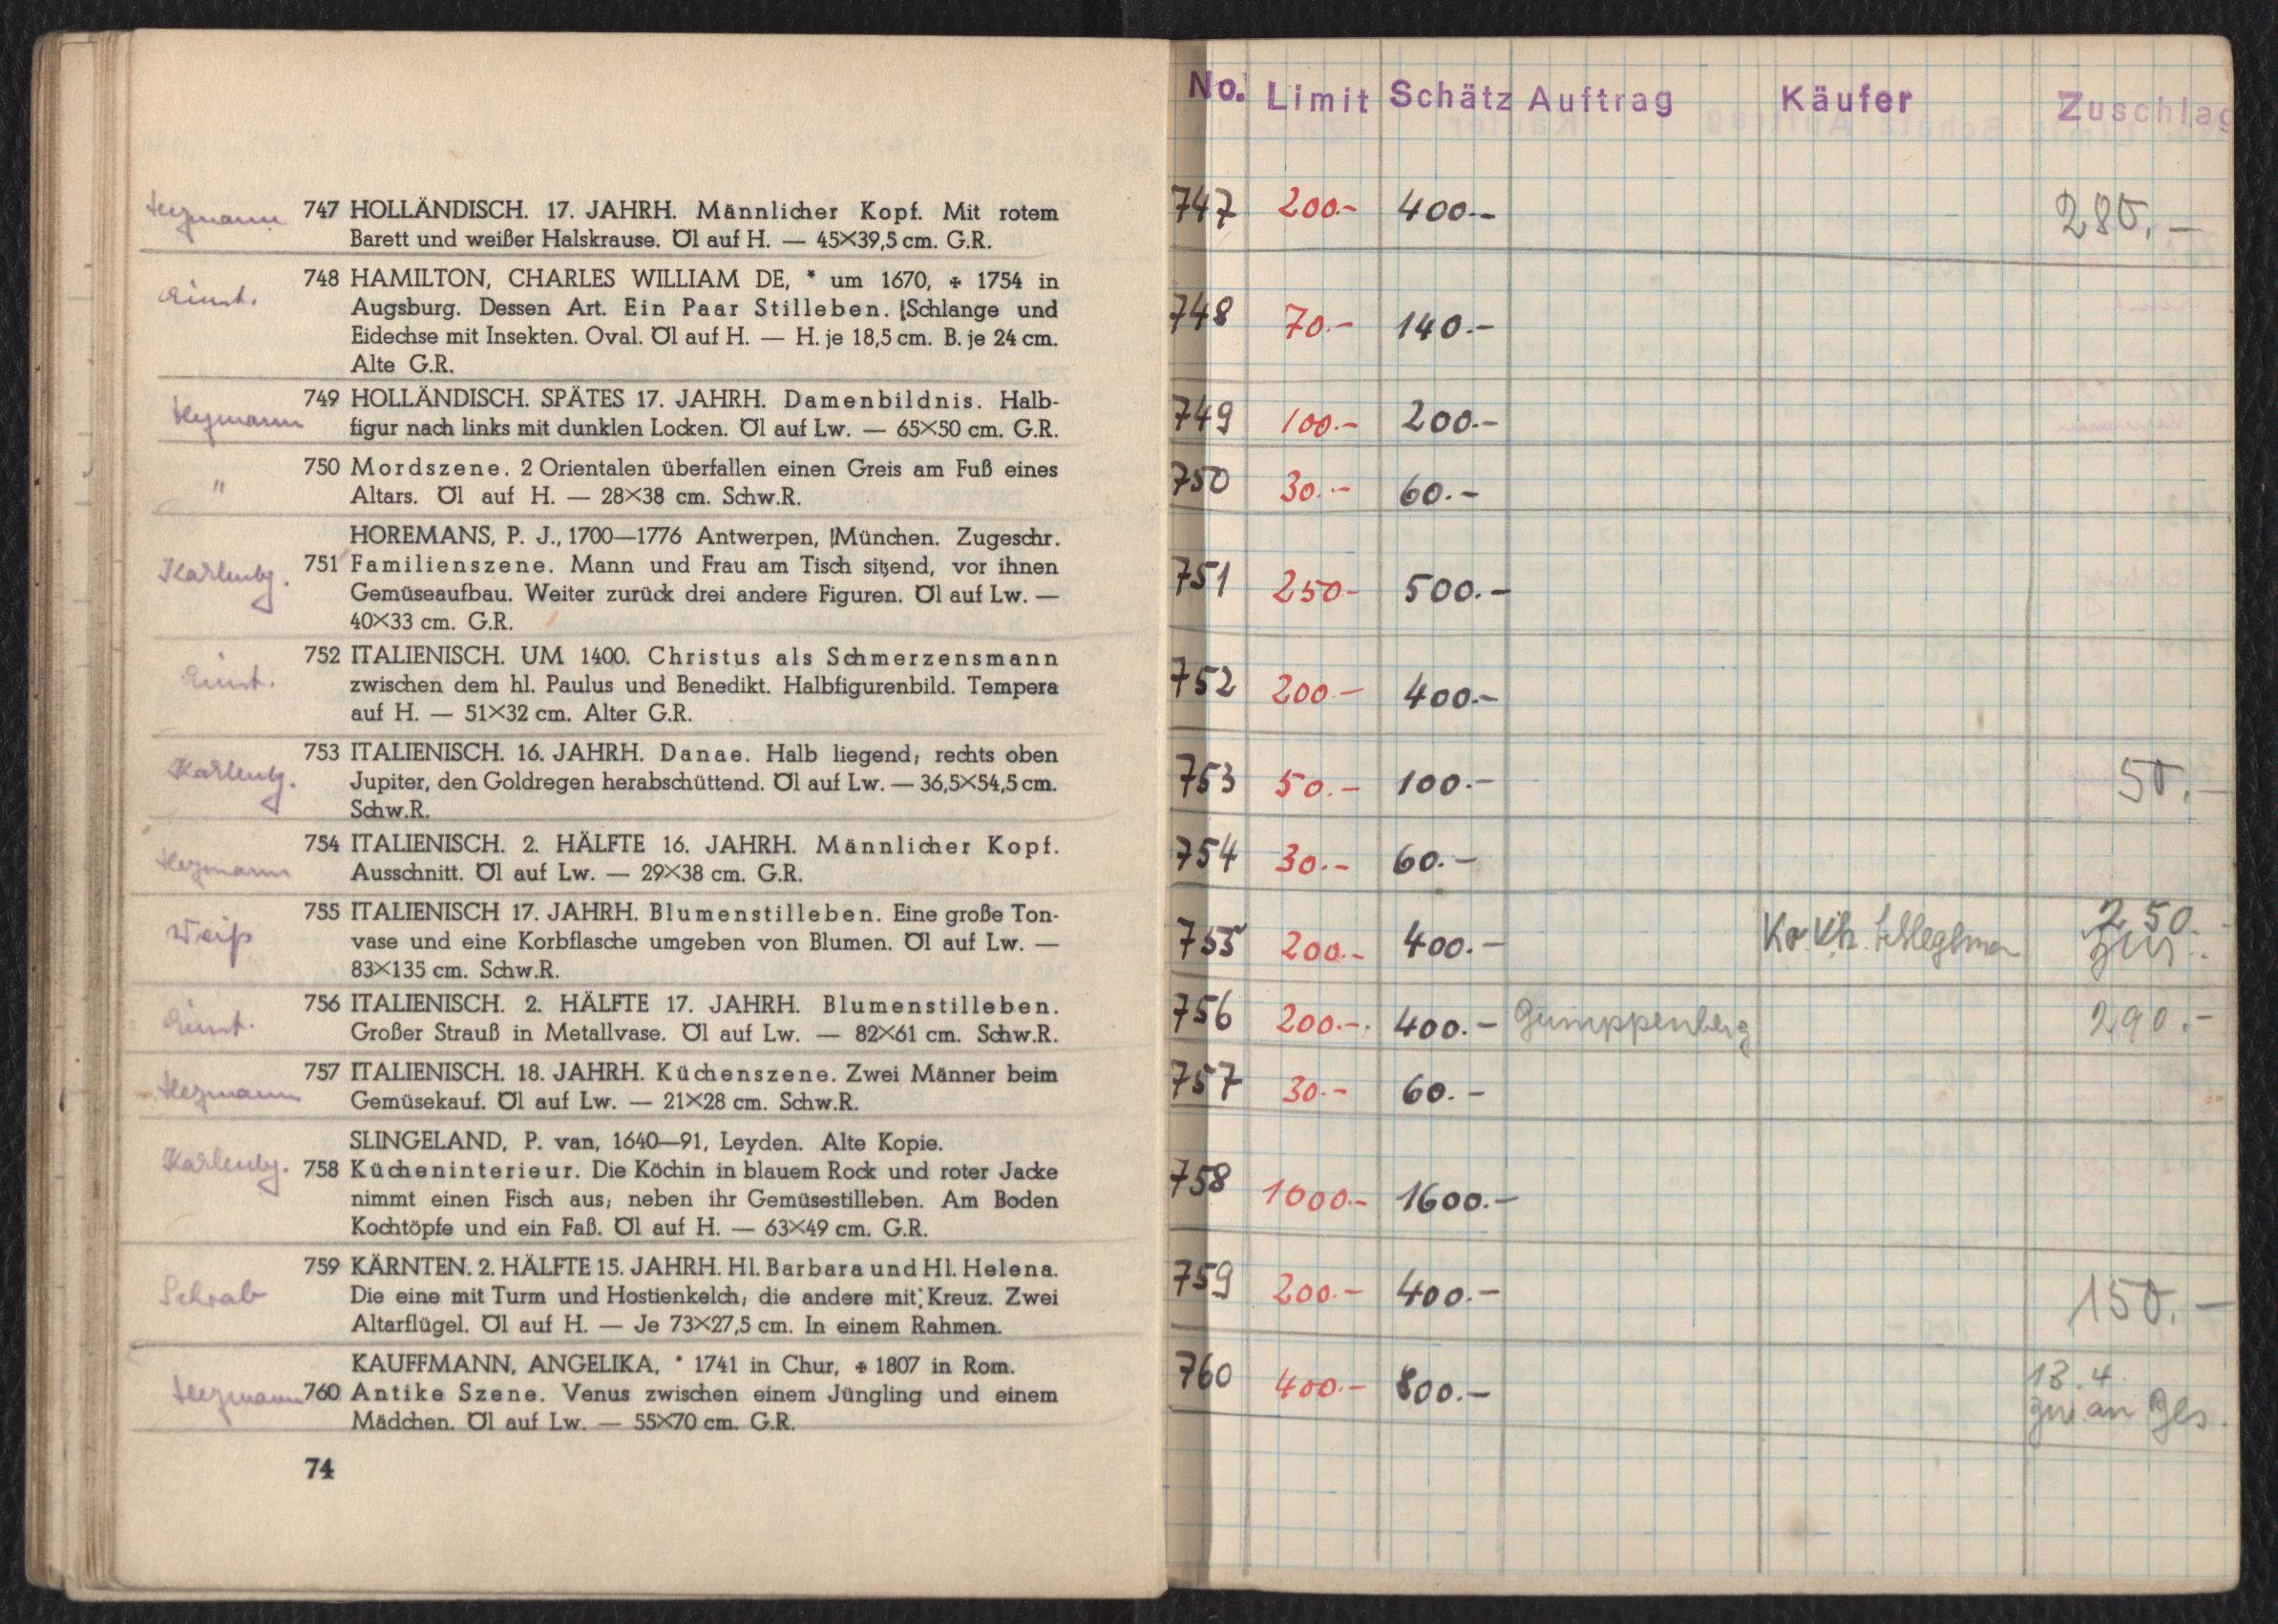 747 HOLLÄNDISCH. 17. JAHRH. Männlicher Kopf. Mit rotem
Barett und weißer Halskrause. Öl auf H. — 45×39,5 cm. G.R.
748 HAMILTON, CHARLES WILLIAM DE, * um 1670, ✠ 1754 in
Augsburg. Dessen Art. Ein Paar Stilleben. Schlange und
Eidechse mit Insekten. Oval. Öl auf H. — H. je 18,5 cm. B. je 24 cm.
Alte G.R.
749 HOLLÄNDISCH. SPÄTES 17. JAHRH. Damenbildnis. Halb-
figur nach links mit dunklen Locken. Öl auf Lw. — 65×50 cm. G.R.
"
750 Mordszene. 2 Orientalen überfallen einen Greis am Fuß eines
Altars. Öl auf H. — 28×38 cm. Schw.R.
HOREMANS, P. J., 1700—1776 Antwerpen, München. Zugeschr.
751 Familienszene. Mann und Frau am Tisch sitzend, vor ihnen
Gemüseaufbau. Weiter zurück drei andere Figuren. Öl auf Lw. —
40×33 cm. G.R.
752 ITALIENISCH. UM 1400. Christus als Schmerzensmann
zwischen dem hl. Paulus und Benedikt. Halbfigurenbild. Tempera
auf H. — 51×32 cm. Alter G.R.
753 ITALIENISCH. 16. JAHRH. Danae. Halb liegend; rechts oben
Jupiter, den Goldregen herabschüttend. Öl auf Lw. — 36,5×54,5 cm.
Schw.R.
754 ITALIENISCH. 2. HÄLFTE 16. JAHRH. Männlicher Kopf.
Ausschnitt. Öl auf Lw. — 29×38 cm. G.R.
Weiß
755 ITALIENISCH 17. JAHRH. Blumenstilleben. Eine große Ton-
vase und eine Korbflasche umgeben von Blumen. Öl auf Lw. —
83×135 cm. Schw.R.
756 ITALIENISCH. 2. HÄLFTE 17. JAHRH. Blumenstilleben.
Großer Strauß in Metallvase. Öl auf Lw. — 82×61 cm. Schw.R.
757 ITALIENISCH. 18. JAHRH. Küchenszene. Zwei Männer beim
Gemüsekauf. Öl auf Lw. — 21×28 cm. Schw.R.
SLINGELAND, P. van, 1640—91, Leyden. Alte Kopie.
758 Kücheninterieur. Die Köchin in blauem Rock und roter Jacke
nimmt einen Fisch aus; neben ihr Gemüsestilleben. Am Boden
Kochtöpfe und ein Faß. Öl auf H. — 63×49 cm. G.R.
Schrab
759 KÄRNTEN. 2. HÄLFTE 15. JAHRH. Hl. Barbara und Hl. Helena.
Die eine mit Turm und Hostienkelch; die andere mit Kreuz. Zwei
Altarflügel. Öl auf H. — Je 73×27,5 cm. In einem Rahmen.
KAUFFMANN, ANGELIKA, * 1741 in Chur, ✠ 1807 in Rom.
760 Antike Szene. Venus zwischen einem Jüngling und einem
Mädchen. Öl auf Lw. — 55×70 cm. G.R.
74
No. Limit Schätz Auftrag Käufer Zuschlag
747 200.- 400.- 280.-
748 70.- 140.-
749 100.- 200.-
750 30.- 60.-
751 250- 500.-
752 200.- 400.-
753 50.- 100.- 50.-
754 30.- 60.-
755 200.- 400.- 250.-
756 200.- 400.- Gumppenberg 290.-
757 30.- 60.-
758 1000.- 1600.-
759 200.- 400.- 150.-
760 400.- 800.- 13.4.